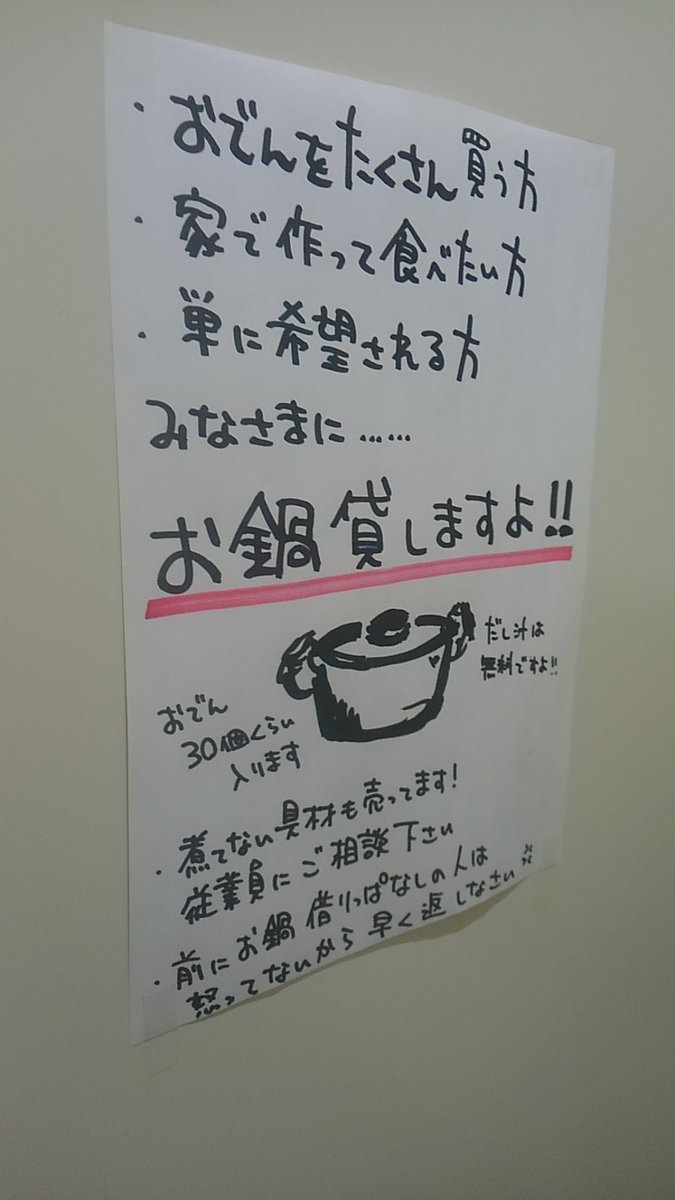 ・おでんをたくさん買う方
・家で作って食べたい方
・単に希望される方
みなさまに……
お鍋貸しますよ!!
だし汁は
無料ですよ!!
おでん
30個くらい
入ります
・煮てない具材も売ってます!
従業員にご相談下さい
・前にお鍋借りっぱなしの人は
怒ってないから早く返しなさい